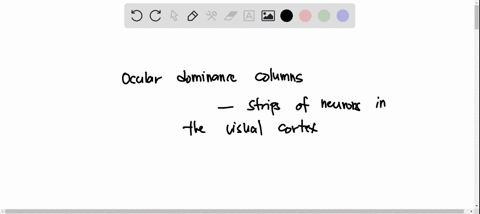 Ocular dominance columns
— strips of neurons in
the visual cortex